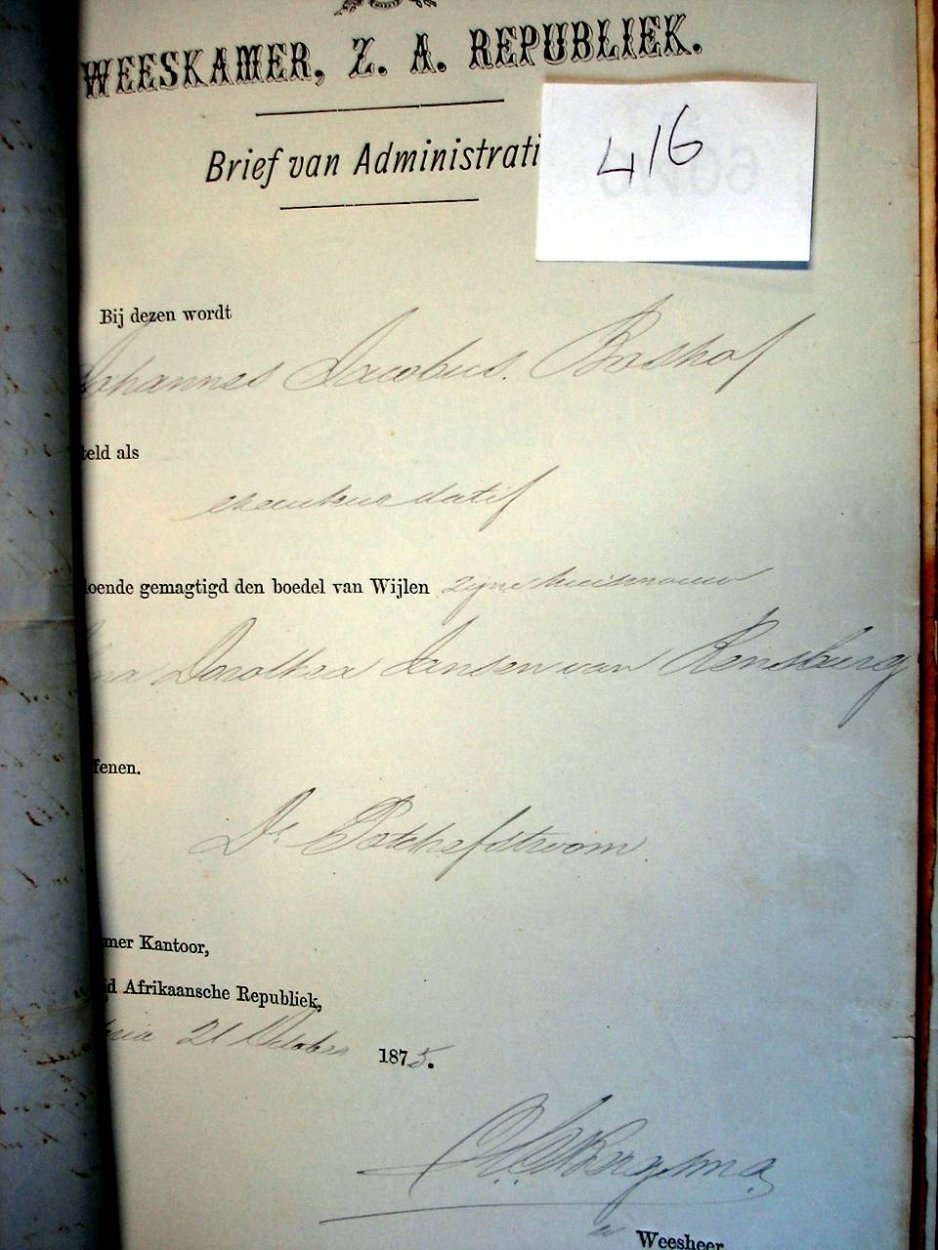 WEESKAMER, Z. A. REPUBLIEK.
416
Brief van Administrati
Bij dezen wordt
Johannes Jacobus. Boshof
teld als
executeur datif
oende gemagtigd den boedel van Wijlen zyne huisvrouw
na Dorothea Jansen van Rensburg
fenen.
Dt Potchefstroom
mer Kantoor,
id Afrikaansche Republiek,
ria 21 October 1875.
Weesheer